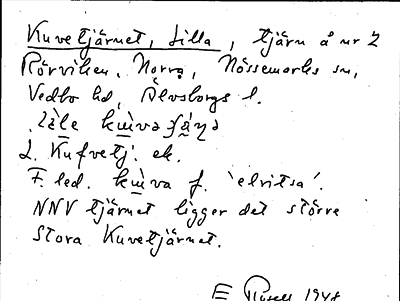 Kuvetjärnet, Lilla, tjärn å nr 2
Rörviken, Norra, Nössemarks sn,
Vedbo hd, Älvsborgs l.
L. Kufvetj. ek.
F. led. kɯ̀va f. 'elritsa'.
NNV tjärnet ligger det större
Stora Kuvetjärnet.
E 1948